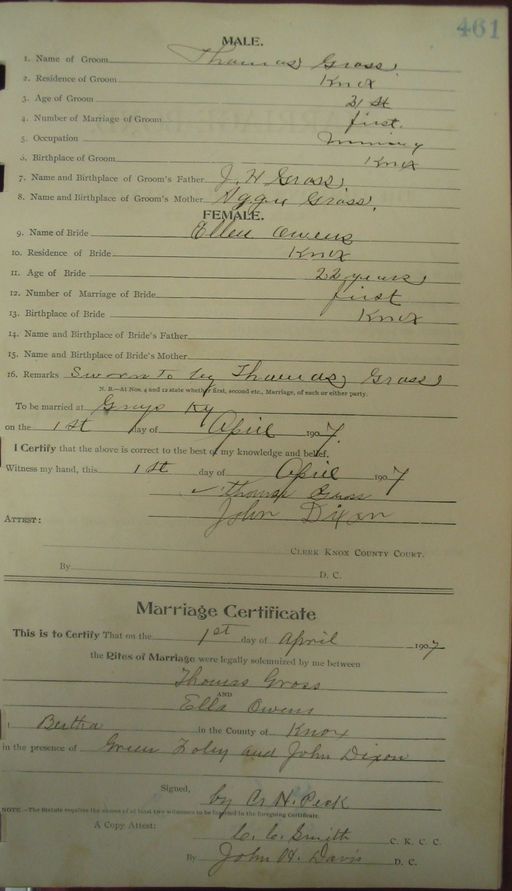 461
MALE.
1. Name of Groom Thomas Gross
2. Residence of Groom Knox
3. Age of Groom 21 St
4. Number of Marriage of Groom first.
5. Occupation
6. Birthplace of Groom Knox
7. Name and Birthplace of Groom's Father J. H Gross.
8. Name and Birthplace of Groom's Mother Aggie Gross.
FEMALE.
9. Name of Bride Ellen Owens
10. Residence of Bride Knox
11. Age of Bride 22 years
12. Number of Marriage of Bride first
13. Birthplace of Bride Knox
14. Name and Birthplace of Bride's Father
15. Name and Birthplace of Bride's Mother
16. Remarks Sworn to by Thomas Gross
N. B.—At Nos. 4 and 12 state whether first, second etc., Marriage, of each or either party.
To be married at Grays Ky
on the 1 St day of April 1907.
I Certify that the above is correct to the best of my knowledge and belief.
Witness my hand, this 1 St day of April 1907
Thomas Gross
John Dixon
ATTEST:
CLERK KNOX COUNTY COURT.
By D. C.
Marriage Certificate
This is to Certify That on the 1st day of April 1907
the Rites of Marriage were legally solemnized by me between
Thomas Gross
AND
Ella Owens
Bertha in the County of Knox
in the presence of Green and John Dixon
Signed, by H. Peck
NOTE.—The Statute requires the names of at least two witnesses to be inserted in the foregoing Certificate.
A Copy Attest: C. C. Smith C. K. C. C.
By John H. Davis D. C.